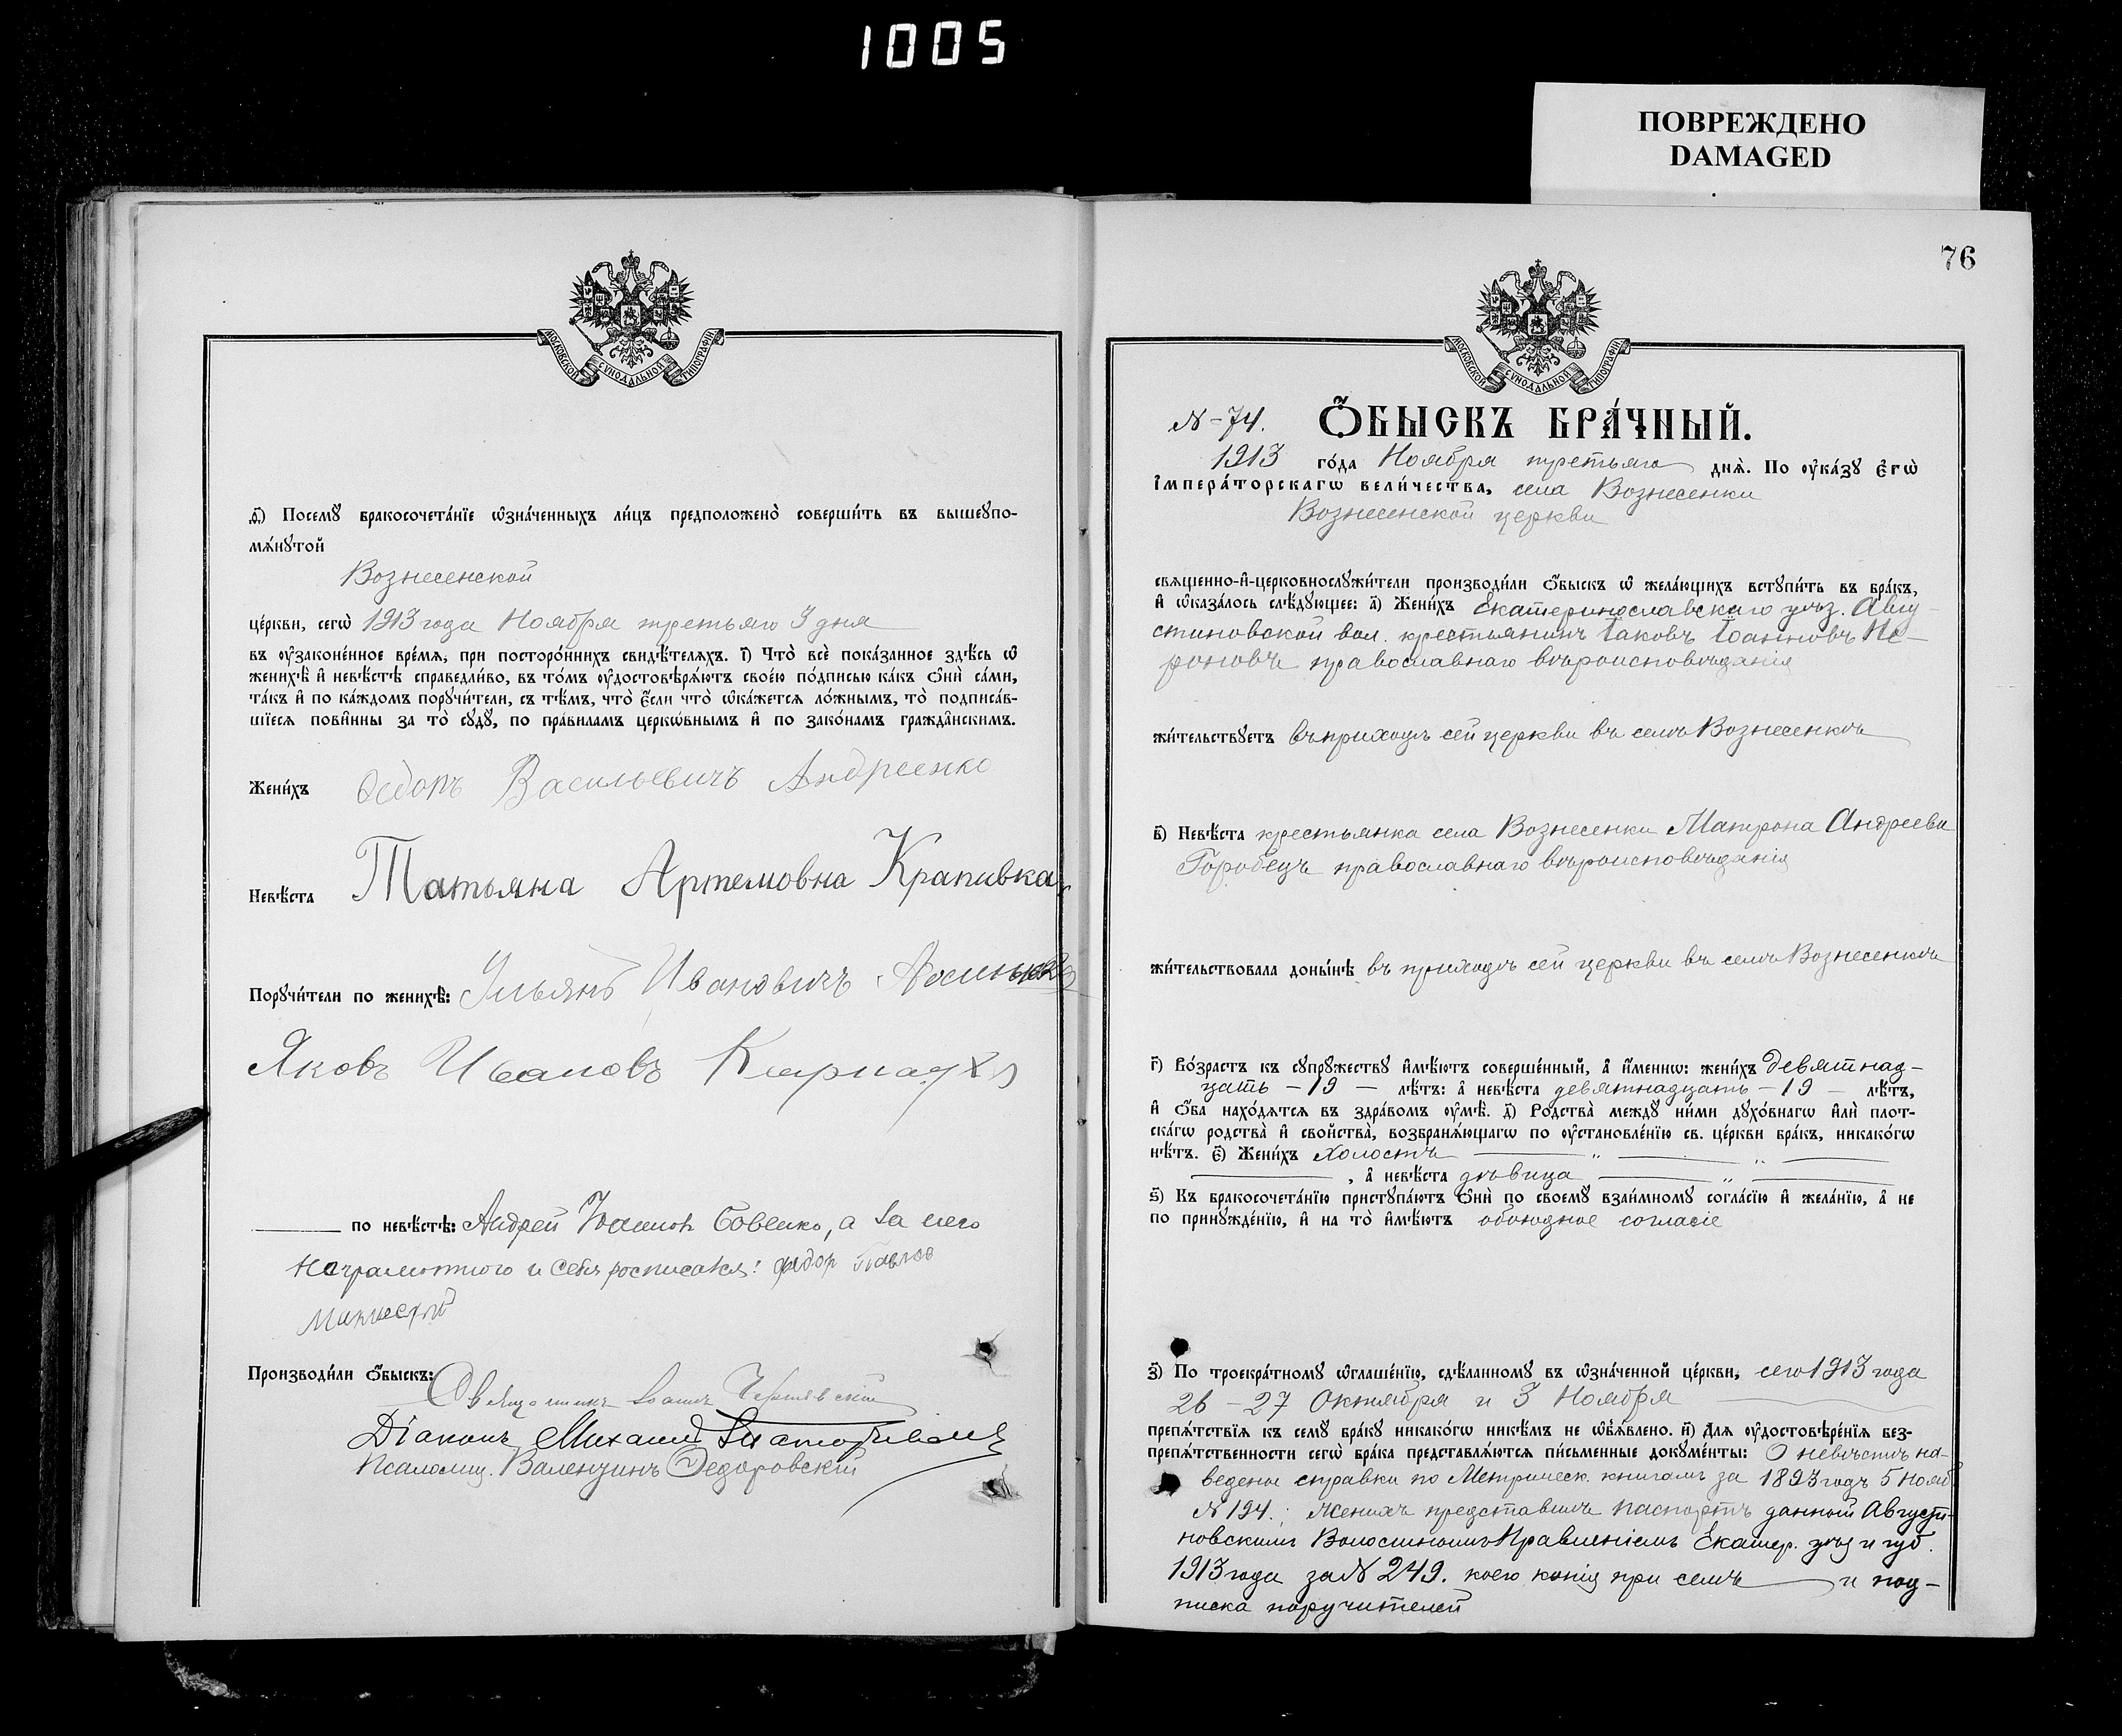 1005
ПОВРЕЖДЕНО
DAMAGED
МОСКОВСКОЙ СѴНОДАЛЬНОЙ ТИПОГРАФІИ
ѳ҃) Посемꙋ̀ бракосочета́нїе ѡ҆зна́ченныхъ ли́цъ предположено̀ соверши́ть въ вышеꙋпо-
мѧ́нꙋтой
Вознесенской
це́ркви, сегѡ̀ 1913 года Ноября третьяго 3 дня
въ ᲂу҆законе́нное вре́мѧ, при посторо́ннихъ свидѣ́телѧхъ. і҃) Что̀ всѐ пока́занное здѣ́сь ѡ҆
женихѣ̀ и҆ невѣ́стѣ справедли́во, въ то́мъ ᲂу҆достовѣрѧ́ютъ свое́ю по́дписью ка́къ ѻ҆нѝ са́ми,
та́къ и҆ по ка́ждомъ порꙋчи́тели, съ тѣ́мъ, что̀ є҆́сли что̀ ѡ҆ка́жетсѧ ло́жнымъ, то̀ подписа́в-
шїесѧ пови́нны за то̀ сꙋдꙋ̀, по пра́виламъ церкѡ́внымъ и҆ по зако́намъ гражда́нскимъ.
Жени́хъ Федоръ Васильевичъ Андреенко
Невѣ́ста Татьяна Артемовна Крапивка
Порꙋчи́тели по женихѣ̀: Ульянъ Ивановичъ
Яковъ Ивановъ
по невѣ́стѣ: Андрей Іоанновъ Бовенко, а за него
неграмотного и себя росписался: Федор Павлов
Производи́ли ѻ҆́быскъ: Священникъ Іоаннъ Чернявскій
Діаконъ Михаилъ
Псаломщ. Валентинъ Федоровскій
76
МОСКОВСКОЙ СѴНОДАЛЬНОЙ ТИПОГРАФІИ
N-74. Ѻ҆́БЫСКЪ БРА́ЧНЫЙ.
1913 го́да Ноября третьяго днѧ̀. По ᲂу҆ка́зꙋ є҆гѡ̀
і҆мпера́торскагѡ вели́чества, села Вознесенки
Вознесенской церкви
свѧще́нно-и҆-церковнослꙋжи́тели производи́ли ѻ҆́быскъ ѡ҆ жела́ющихъ встꙋпи́ть въ бра́къ,
и҆ ѡ҆каза́лось слѣ́дꙋющее: а҃) Жени́хъ Екатеринославскаго уѣз. Авгу-
стиновской вол. крестьянинъ Іаковъ Іоанновъ Не-
роновъ православнаго вѣроисповѣданія
жи́тельствꙋетъ въ приходѣ сей церкви въ селѣ Вознесенкѣ
в҃) Невѣ́ста крестьянка села Вознесенки Матрона Андреева
Горобецъ православнаго вѣроисповѣданія
жи́тельствовала доны́нѣ въ приходѣ сей церкви въ селѣ Вознесенкѣ
г҃) Во́зрастъ къ сꙋпрꙋ́жествꙋ и҆мѣ́ютъ соверше́нный, а҆ и҆́менно: жени́хъ девятнад-
цать - 19 - лѣ́тъ: а҆ невѣ́ста девятнадцать - 19 - лѣ́тъ,
и҆ ѻ҆́ба нахо́дѧтсѧ въ здра́вомъ ᲂу҆мѣ̀. д҃) Родства̀ междꙋ ни́ми дꙋхо́внагѡ и҆лѝ плот-
ска́гѡ родства̀ и҆ сво́йства, возбранѧ́ющагѡ по ᲂу҆становле́нїю св. це́ркви бра́къ, никако́гѡ
нѣ́тъ. є҃) Жени́хъ холостъ — „ — „ —
—, а҆ невѣ́ста дѣвица — „ —
ѕ҃) Къ бракосочета́нїю пристꙋпа́ютъ ѻ҆нѝ по своемꙋ̀ взаи́мномꙋ согла́сїю и҆ жела́нїю, а҆ не
по принꙋжде́нїю, и҆ на то̀ и҆мѣ́ютъ обоюдное согласіе
з҃) По троекра́тномꙋ ѡ҆глаше́нїю, сдѣ́ланномꙋ въ ѡ҆зна́ченной це́ркви, сего 1913 года
26 - 27 Октября и 3 Ноября
препѧ́тствїѧ къ семꙋ̀ бра́кꙋ никако́гѡ никѣ́мъ не ѡ҆б̾ѧ́влено. и҃) Длѧ ᲂу҆достовѣре́нїѧ без-
препѧ́тственности сегѡ̀ бра́ка представлѧ́ютсѧ пи́сьменные докꙋме́нты: О невѣстѣ на-
ведены справки по Метрическ. книгамъ за 1893 годъ 5 Нояб
N 194.; Женихъ представилъ паспортъ данный Августи-
новскимъ Волостнымъ Правленіемъ Екатер. уѣз и губ.
1913 года за N 249. коего копія при семъ — и под-
писка поручителей